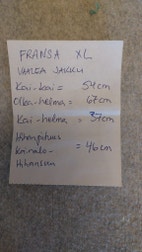 FRANSA XL
VAALEA JAKKU
Kai-kai = 54cm
Olka-helma = 67cm
Kai-helma = 37cm
Hihanpituus
Kainalo- = 46cm
Hihansuu